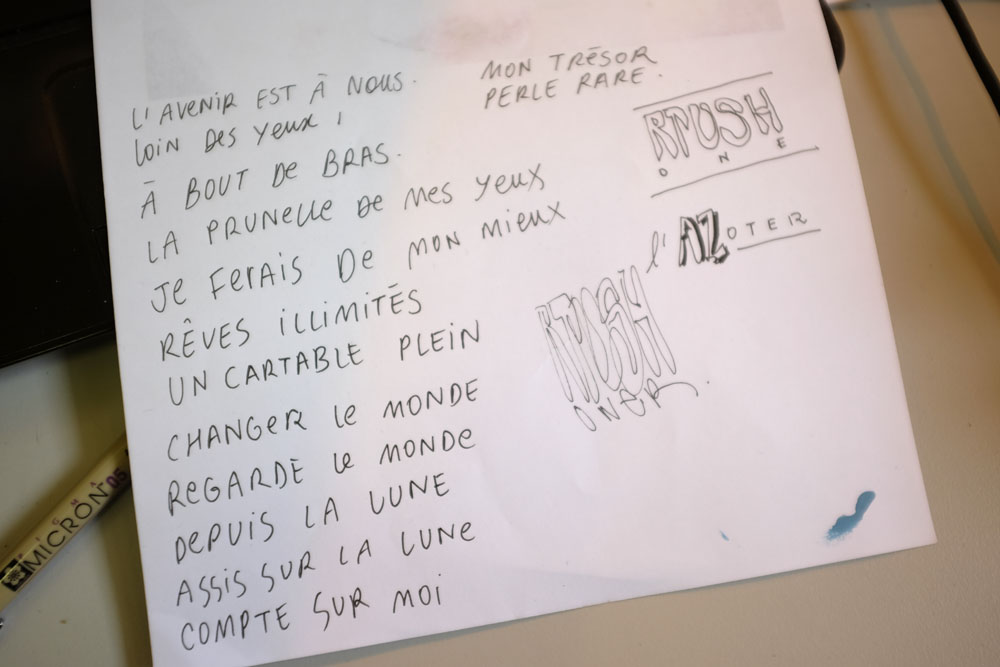 L'AVENIR EST À NOUS.
LOIN DES YEUX,
À BOUT DE BRAS.
LA PRUNELLE DE MES YEUX
JE FERAIS DE MON MIEUX
RÊVES ILLIMITÉS
UN CARTABLE PLEIN
CHANGER LE MONDE
REGARDÉ LE MONDE
DEPUIS LA LUNE
ASSIS SUR LA LUNE
COMPTE SUR MOI
MON TRÉSOR
PERLE RARE.
RTUSH
ONE
L'AZOTER
RTUSH
ONER.
MICRON 05